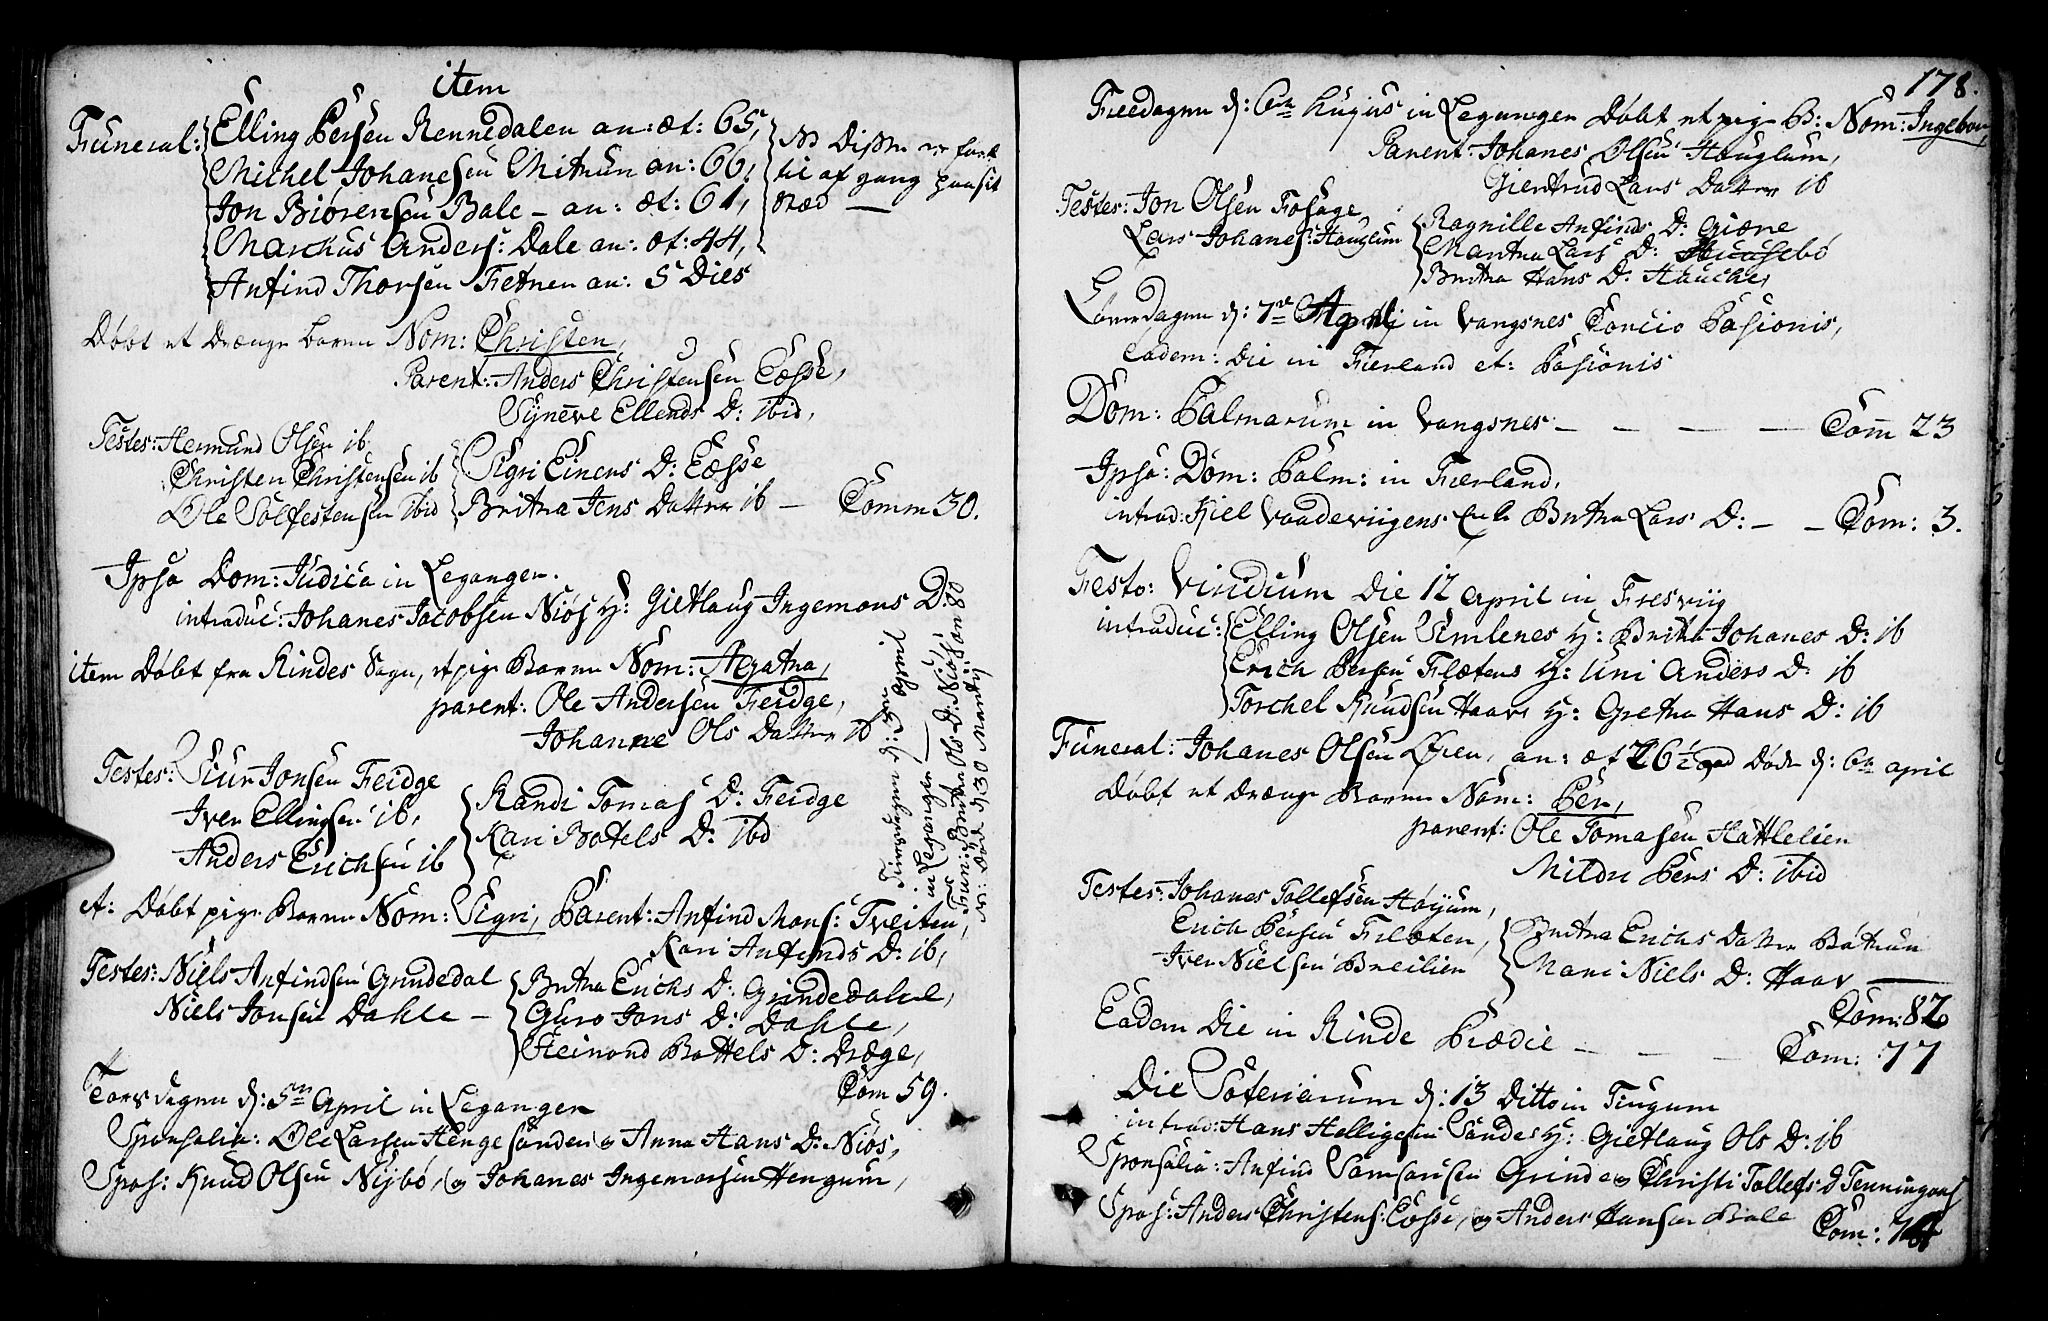 item
Funeral: Elling Persen Rennedalen an: æt: 65,
Michel Johanesen Mitrun an: 66,
Jon Biørensen Bale - an: æt: 61,
Marckus Anders: Dale an: æt: 44,
Anfind Thorsen Fetnen an: 5 Dies
NB Disse er fort
til af gang
Stæd —
Døbt et Drænge barn Nom: Christen,
Parent: Anders Christensen Eæsse,
Synneve Ellends D: ibid,
Testes: Hermund Olsen ib.
Christen Christensen ib
Ole Solfestensen ibid
Sigri Einers D: Eæsse
Britha Jens Datter ib — Comm 30.
Ipso Dom: Judica in Legangen.
introduc: Johanes Jacobsen Niøs H: Gietlaug Ingemans D:
item Døbt fra Rindes Sogn, et pige Barn Nom: Agatha,
parent: Ole Andersen Feidge,
Johanne Ols Datter ib
Testes: Siur Jonsen Feidge
Iver Ellingsen ib,
Anders Erichsen ib
Randi Tomas D: Feidge
Kari Botels D: ibd
Tiirsdagen d: 3en April
in Legangen —
Fun: Britha Ols D: Niøs an 80
N: Døde d: 30 Martij
et: Døbt pige Barn Nom: Sigri, Parent: Anfind Mons: Tveiten,
Kari Anfinds D: ib,
Testes: Niels Anfindsen Grindedal
Niels Jonsen Dahle —
Britha Erichs D: Grindedahl,
Guro Jons D: Dahle,
Steinond Bottels D: Dræge,
Com 59.
Torsdagen d: 5en April in Legangen
Sponsalia: Ole Larsen Hengesanden & Anna Hans D: Niøs,
Spos: Knud Olsen Nybø, & Johanes Ingemarsen Hengum,
178.
Freedagen d: 6te hujus in Legangen Døbt et pige B: Nom: Ingebor,
Parent: Johanes Olsen Houglum,
Giertrud Lars Datter ib
Testes: Jon Olsen Fosage
Lars Johanes: Houglum
Ragnille Anfinds D: Giære
Martha Lars D: Huusebø
Britha Hans D: Hauche,
Løverdagen d: 7de Aprilj in Vangsnes Concio Pasionis,
Eadem: Die in Fierland et: Pasionis
Dom: Palmarum in Vangsnes — — — — Comm 23
Ipso: Dom: Palm: in Fierland,
introd: Kiel Vaadeviigens Britha Lars D: — — Com: 3.
Festo: Viridium Die 12 April in Fresviig
introduc: Elling Olsen Simlenes H: Britha Johanes D: ib
Erich Persen Flætens H: Uni Anders D: ib
Torchel Knudsen Haave H: Gretha Hans D: ib
Funeral: Johanes Olsen Øren, an: æt 76½ Døde d: 6te april
Døbt et Drænge Barn Nom: Per,
parent: Ole Tomasen Hattlelien
Mildri Pers D: ibid
Testes: Johanes Tollefsen Høyum,
Erich Persen Flæten,
Iver Nielsen Breilien
Britha Erichs Datter Bøtun
Mari Niels D: Haav —
Com: 82
Eadem Die in Rinde Prædic — — — Com: 77
Die Soteriarum d: 13 Ditto in Tiugum
introd: Hans Helligesen Sande H: Gietlaug Ols D: ib
Sponsalia: Anfind Samsonsen Grinde & Christi Tollefs D Tenningans
Spos: Anders Christens: Eæsse, & Anders Hansen Bale
Com: